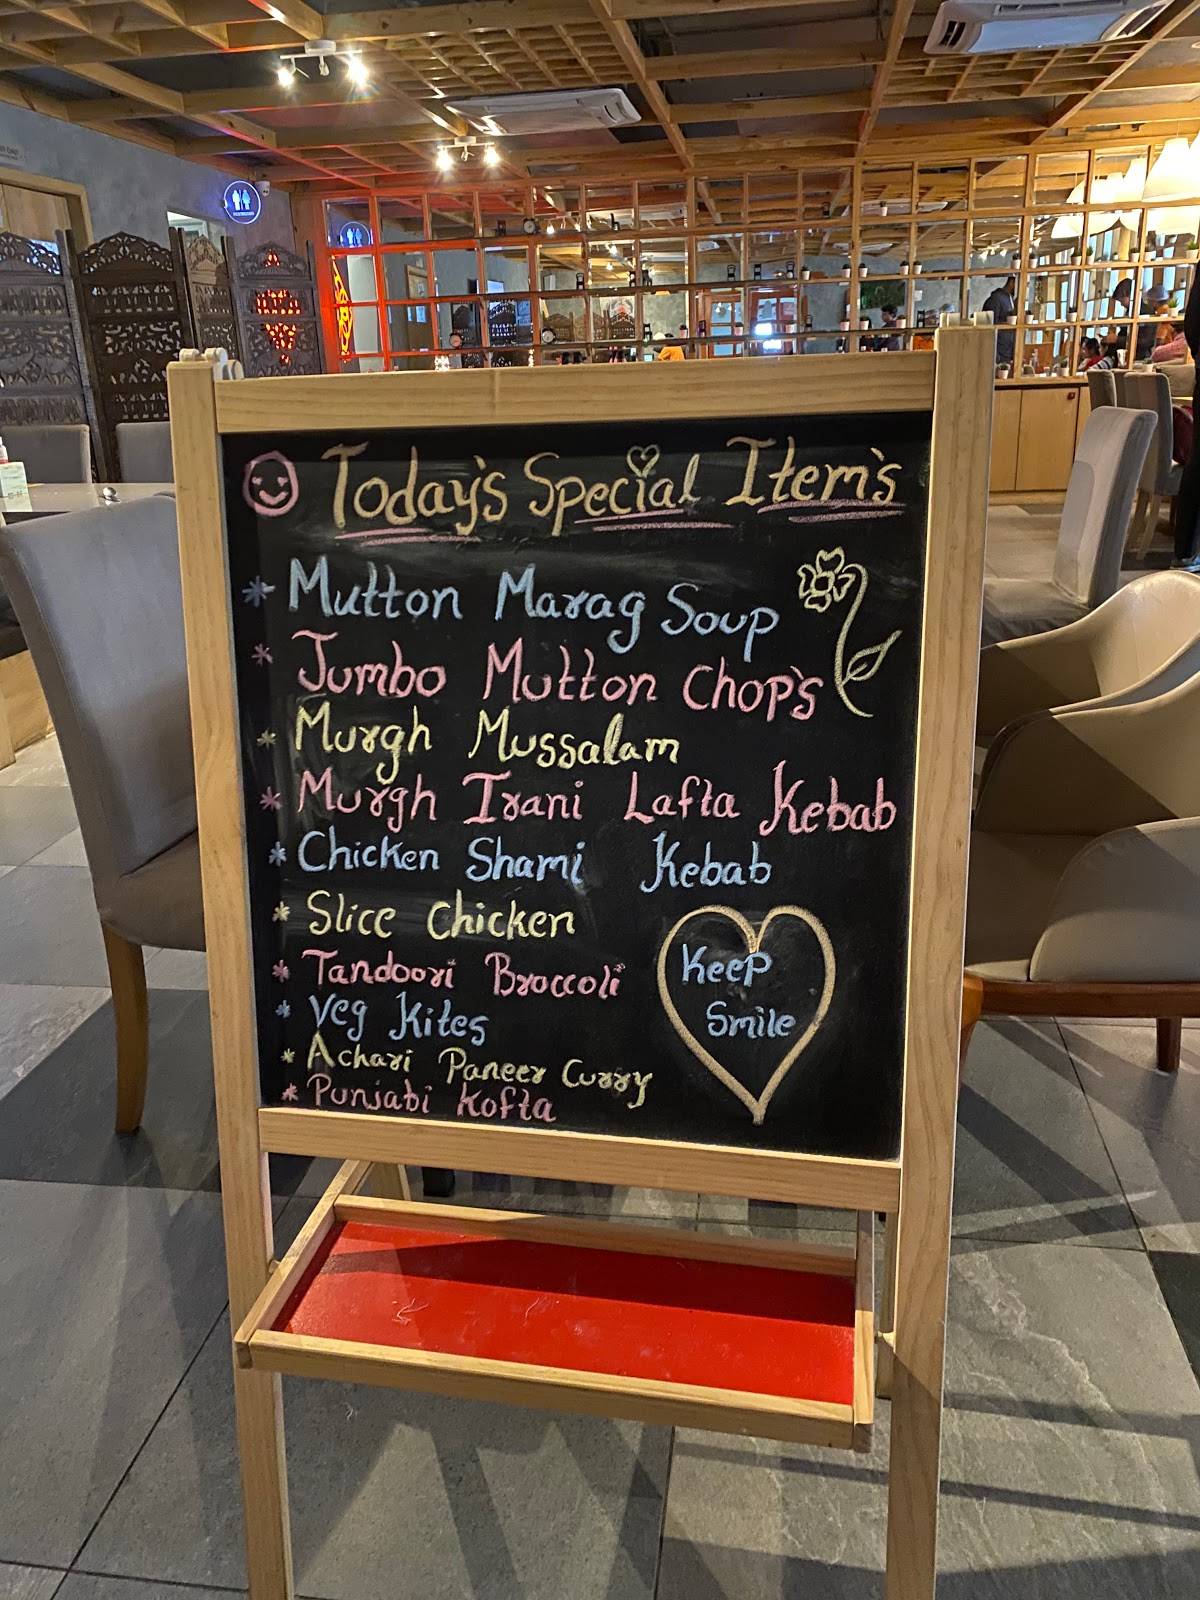 Today's Special Item's
* Mutton Marag Soup
* Jumbo Mutton Chop's
* Murgh Mussalam
* Murgh Irani Lafta Kebab
* Chicken Shami Kebab
* Slice Chicken
* Tandoori Broccoli
* Veg Kites
* Achari Paneer Curry
* Punjabi Kofta
Keep
Smile